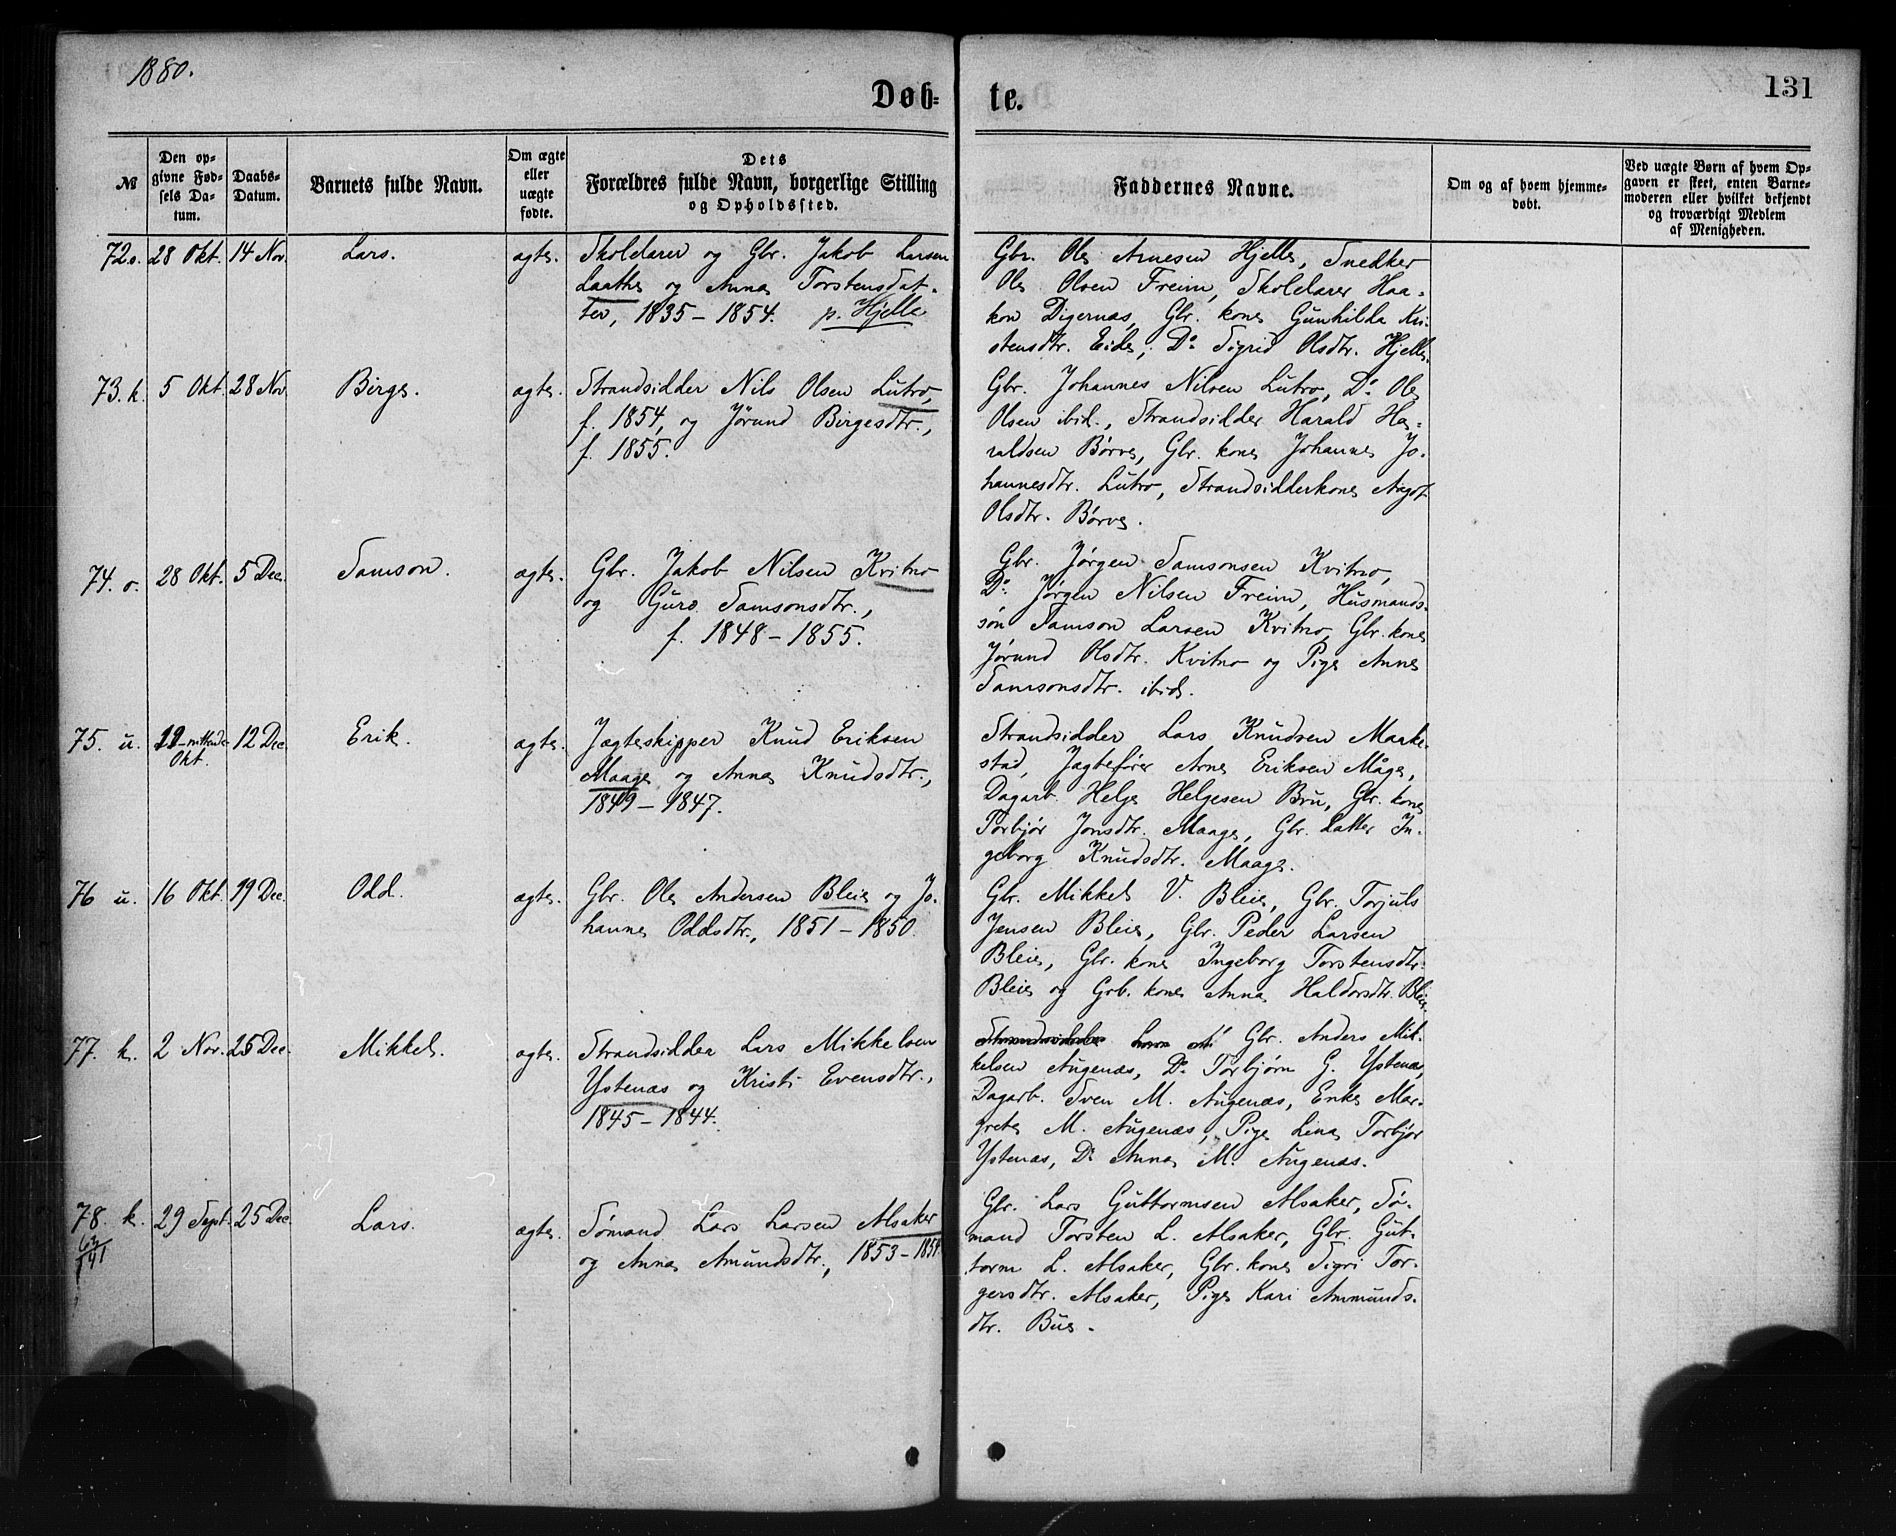 1880.
Døb-
te.
131
№
Den op-
givne Fød-
sels Da-
tum.
Daabs-
Datum.
Barnets fulde Navn.
Om ægte
eller
uægte
fødte.
Dets
Forældres fulde Navn, borgerlige Stilling
og Opholdssted.
Faddernes Navne.
Om og af hvem hjemme-
døbt.
Ved uægte Børn af hvem Op-
gaven er skeet, enten Barne-
moderen eller hvilket bekjendt
og troværdigt Medlem
af Menigheden.
72. o. 28 Okt. 14 Nov. Lars. ægte.
Skolelærer og Gbr. Jakob Larsen
Laathe og Anna Torstensdat-
ter, 1835 – 1854. p. Hjelle
Gbr. Ole Arnesen Hjelle, Snedker
Ole Olsen Freim, Skolelærer Haa-
kon Digernæs, Gbr. kone Gunhilda Kri-
stensdtr. Eide, Do Sigrid Olsdtr. Hjelle.
73. k. 5 Okt. 28 Nov. Birge. ægte.
Strandsidder Nils Olsen Lutro,
f. 1854, og Jørund Birgesdtr.,
f. 1855.
Gbr. Johannes Nilsen Lutro, Do Ole
Olsen ibid., Strandsidder Harald Ha-
raldsen Børve, Gbr. kone Johanne Jo-
hannesdtr. Lutro, Strandsidderkone Aagot
Olsdtr. Børve.
74. o. 28 Okt. 5 Dec. Samson. ægte.
Gbr. Jakob Nilsen Kvitno
og Guro Samsonsdtr.,
f. 1848 – 1855.
Gbr. Jørgen Samsonsen Kvitno,
Do Jørgen Nilsen Freim, Husmands-
søn Samson Larsen Kvitno, Gbr. kone
Jørund Olsdtr. Kvitno og Pige Anne
Samsonsdtr. ibid.
75. u. 19 – nittende Okt. 12 Dec. Erik. ægte.
Jægteskipper Knud Eriksen
Maage og Anna Knudsdtr.,
1849 – 1847.
Strandsidder Lars Knudsen Marke-
stad, Jagtefører Arne Eriksen Måge,
Dagarb. Helge Helgesen Bru, Gbr. kone
Torbjør Jonsdtr. Maage, Gbr. datter In-
geborg Knudsdtr. Maage.
76 u. 16 Okt. 19 Dec. Odd. ægte.
Gbr. Ole Andersen Bleie og Jo-
hanne Oddsdtr., 1851 – 1850.
Gbr. Mikkel V. Bleie, Gbr. Torjuls
Jensen Bleie, Gbr. Peder Larsen
Bleie, Gbr. kone Ingeborg Torstensdtr.
Bleie og Grb. kone Anna Haldorsdtr. Bleie
77. k. 2 Nov. 25 Dec. Mikkel. ægte.
Strandsidder Lars Mikkelsen
Ystenæs og Kristi Evensdtr.,
1845 – 1844.
Strandsidder Gbr. Anders Mik-
kelsen Augenæs, Do Torbjørn G. Ystenæs,
Dagarb. Sven M. Augenæs, Enke Mar-
grete M. Augenæs, Pige Lina Torbjør
Ystenæs, Do Anna M. Augenæs.
78. k. 29 Sept. 25 Dec. Lars. ægte.
Sømand Lars Larsen Alsaker
og Anna Amundsdtr., 1853 – 1854.
Gbr. Lars Guttormsen Alsaker, Sø-
mand Torsten L. Alsaker, Gbr. Gut-
torm L. Alsaker, Gbr. kone Sigri Tor-
gersdtr. Alsaker, Pige Kari Ammunds-
dtr. Bue.